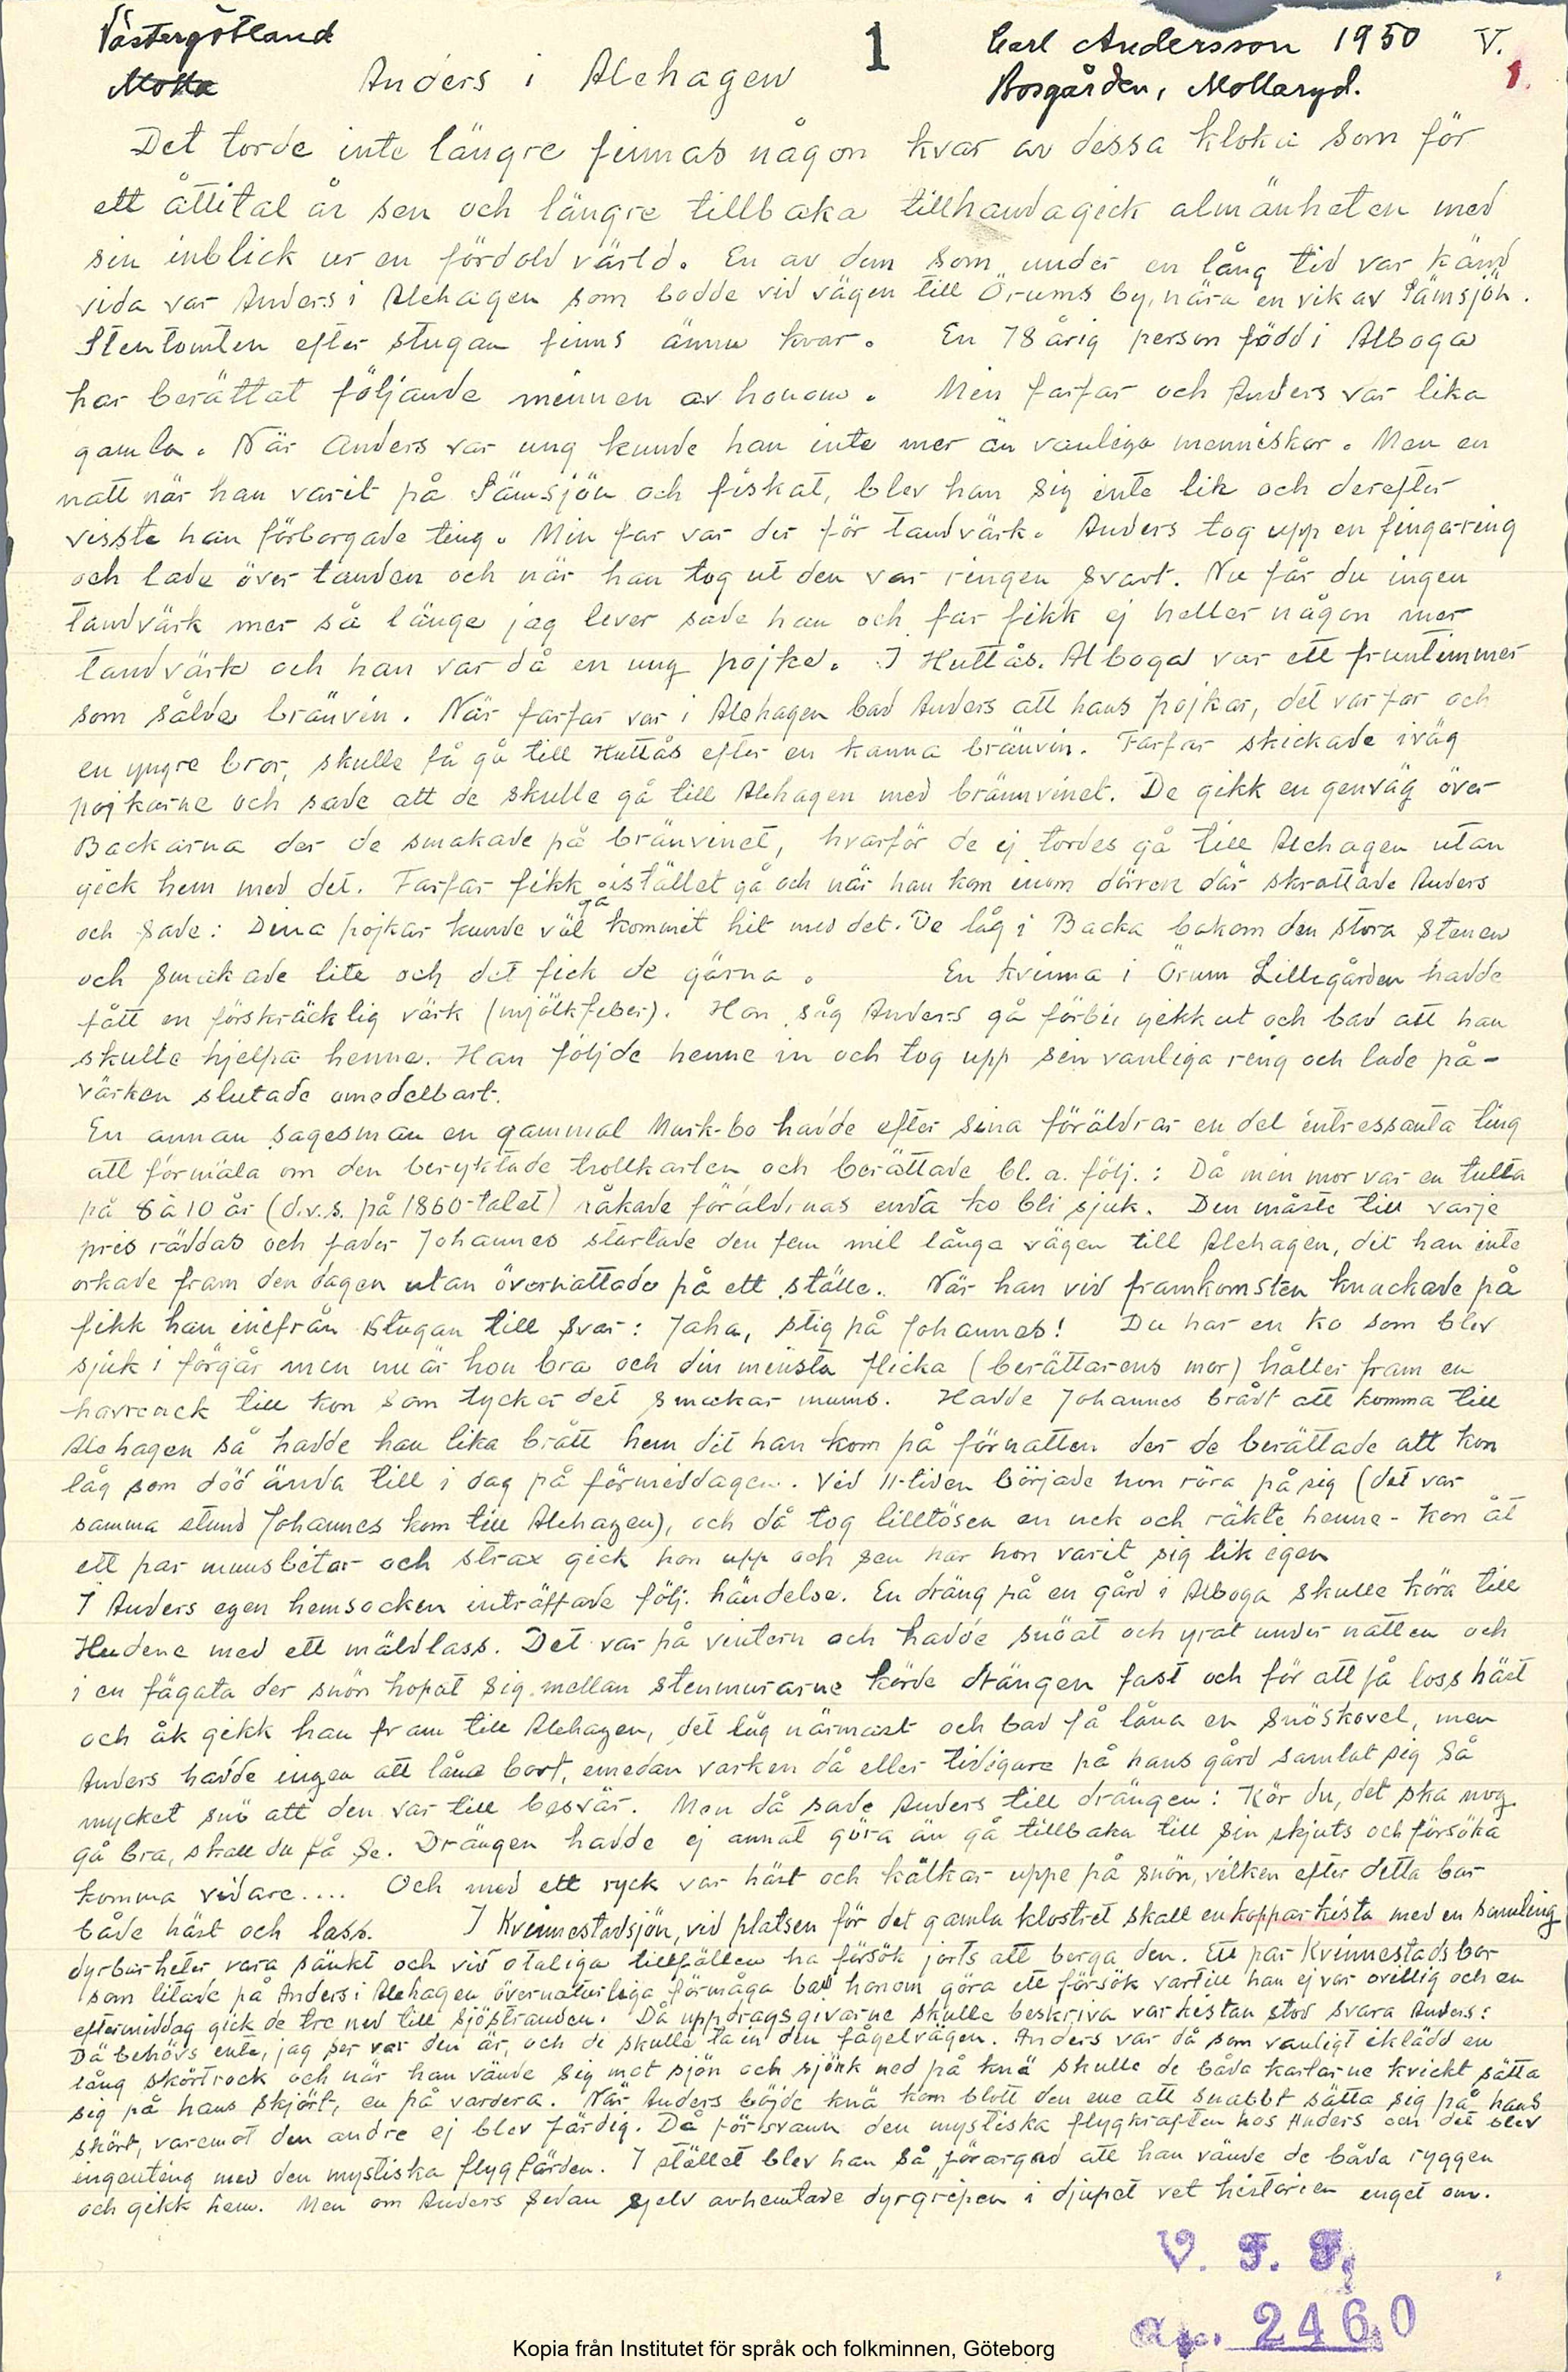 Västergötland
1
Carl Andersson 1950 V.
Molla
Anders i Alehagen
Bosgården, Mollaryd.
1.
Det torde inte längre finnas någon kvar av dessa kloka som för
ett åttital år sen och längre tillbaka tillhandagick almänheten med
sin inblick ur en fördold värld. En av dem som under en lång tid var känd
vida var Anders i Alehagen som bodde vid vägen till Örums by, nära en vik av Sämsjön.
Stentomten efter stugan finns ännu kvar. En 78 årig person född i Alboga
har berättat följande minnen av honom. Min farfar och Anders var lika
gamla. När Anders var ung kunde han inte mer än vanliga menniskor. Men en
natt när han varit på Sämsjön och fiskat, blev han sig inte lik och derefter
visste han förborgade ting. Min far var der för tandvärk. Anders tog upp en fingerring
och lade över tanden och när han tog ut den var ringen svart. Nu får du ingen
tandvärk mer så länge jag lever sade han och far fikk ej heller någon mer
tandvärk och han var då en ung pojke. I Huttås. Alboga var ett fruntimmer
som sålde bränvin. När farfar var i Alehagen bad Anders att hans pojkar, det var far och
en yngre bror, skulle få gå till Huttås efter en kanna bränvin. Farfar skickade iväg
pojkarne och sade att de skulle gå till Alehagen med brännvinet. De gikk en genväg över
Backarna der de smakade på bränvinet, hvarför de ej tordes gå till Alehagen utan
gick hem med det. Farfar fikk istället gå och när han kom inom dörren där skrattade Anders
och sade: Dina pojkar kunde väl gå kommit hit med det. De låg i Backa bakom den stora stenen
och smakade lite och det fick de gärna. En kvinna i Örum Lillegården hadde
fått en förskräcklig värk (mjölkfeber). Hon såg Anders gå förbi gikk ut och bad att han
skulle hjelpa henne. Han följde henne in och tog upp sin vanliga ring och lade på -
värken slutade omedelbart.
En annan sagesman en gammal Mark-bo hadde efter sina föräldrar en del intressanta ting
att förmäla om den beryktade trollkarlen och berättade bl. a. följ.: Då min mor var en tulta
på 8 à 10 år (d.v.s. på 1860-talet) råkade föräldrnas enda ko bli sjuk. Den måste till varje
pris räddas och fader Johannes startade den fem mil långa vägen till Alehagen, dit han inte
orkade fram den dagen utan övernattade på ett ställe. När han vid framkomsten knackade på
fikk han inefrån stugan till svar: Jaha, stig på Johannes! Du har en ko som blev
sjuk i förgår men nu är hon bra och din minsta flicka (berättarens mor) håller fram en
havreack till kon som tycker det smakar mums. Hadde Johannes brått att komma till
Alehagen så hadde han lika brått hem dit han kom på förnatten der de berättade att kon
låg som död ända till i dag på förmiddagen. Vid 11-tiden började hon röra på sig (det var
samma stund Johannes kom till Alehagen), och då tog lilltösen en nek och räkte henne - kon åt
ett par munsbitar och strax gick hon upp och sen har hon varit sig lik egen
I Anders egen hemsocken inträffade följ. händelse. En dräng på en gård i Alboga skulle köra till
Hudene med ett mäldlass. Det var på vintern och hadde snöat och yrat under natten och
i en fägata der snön hopat sig mellan stenmurarne körde drängen fast och för att få loss häst
och åk gikk han fram till Alehagen, det låg närmast och bad få låna en snöskovel, men
Anders hadde ingen att låna bort, emedan varken då eller tidigare på hans gård samlat sig så
mycket snö att den var till besvär. Men då sade Anders till drängen: Kör du, det ska nog
gå bra, skall du få se. Drängen hadde ej annat göra än gå tillbaka till sin skjuts och försöka
komma vidare.... Och med ett ryck var häst och kälkar uppe på snön, vilken efter detta bar
både häst och lass. I Kvinnestadsjön, vid platsen för det gamla klostret skall en kopparkista med en samling
dyrbarheter vara sänkt och vid otaliga tillfällen ha försök jorts att berga den. Ett par Kvinnestadsbor
som litade på Anders i Alehagen övernaturliga förmåga bad honom göra ett försök vartill han ej var ovillig och en
eftermiddag gick de tre ned till sjöstranden. Då uppdragsgivarne skulle beskriva var kistan stod svara Anders:
Dä behövs ente, jag ser var den är, och de skulle ta in den fågelvägen. Anders var då som vanligt iklädd en
lång skörtrock och när han vände sig mot sjön och sjönk ned på knä skulle de båda karlarne kvickt sätta
sig på hans skjört, en på vardera. När Anders böjde knä kom blott den ene att snabbt sätta sig på hans
skört, varemot den andre ej blev färdig. Då försvann den mystiska flygkraften hos Anders och det blev
ingenting med den mystiska flygfärden. I stället blev han så förargad att han vände de båda ryggen
och gikk hem. Men om Anders sedan sjelv avhemtade dyrgripen i djupet vet historien inget om.
V. F. F.
ap. 2460
Kopia från Institutet för språk och folkminnen, Göteborg